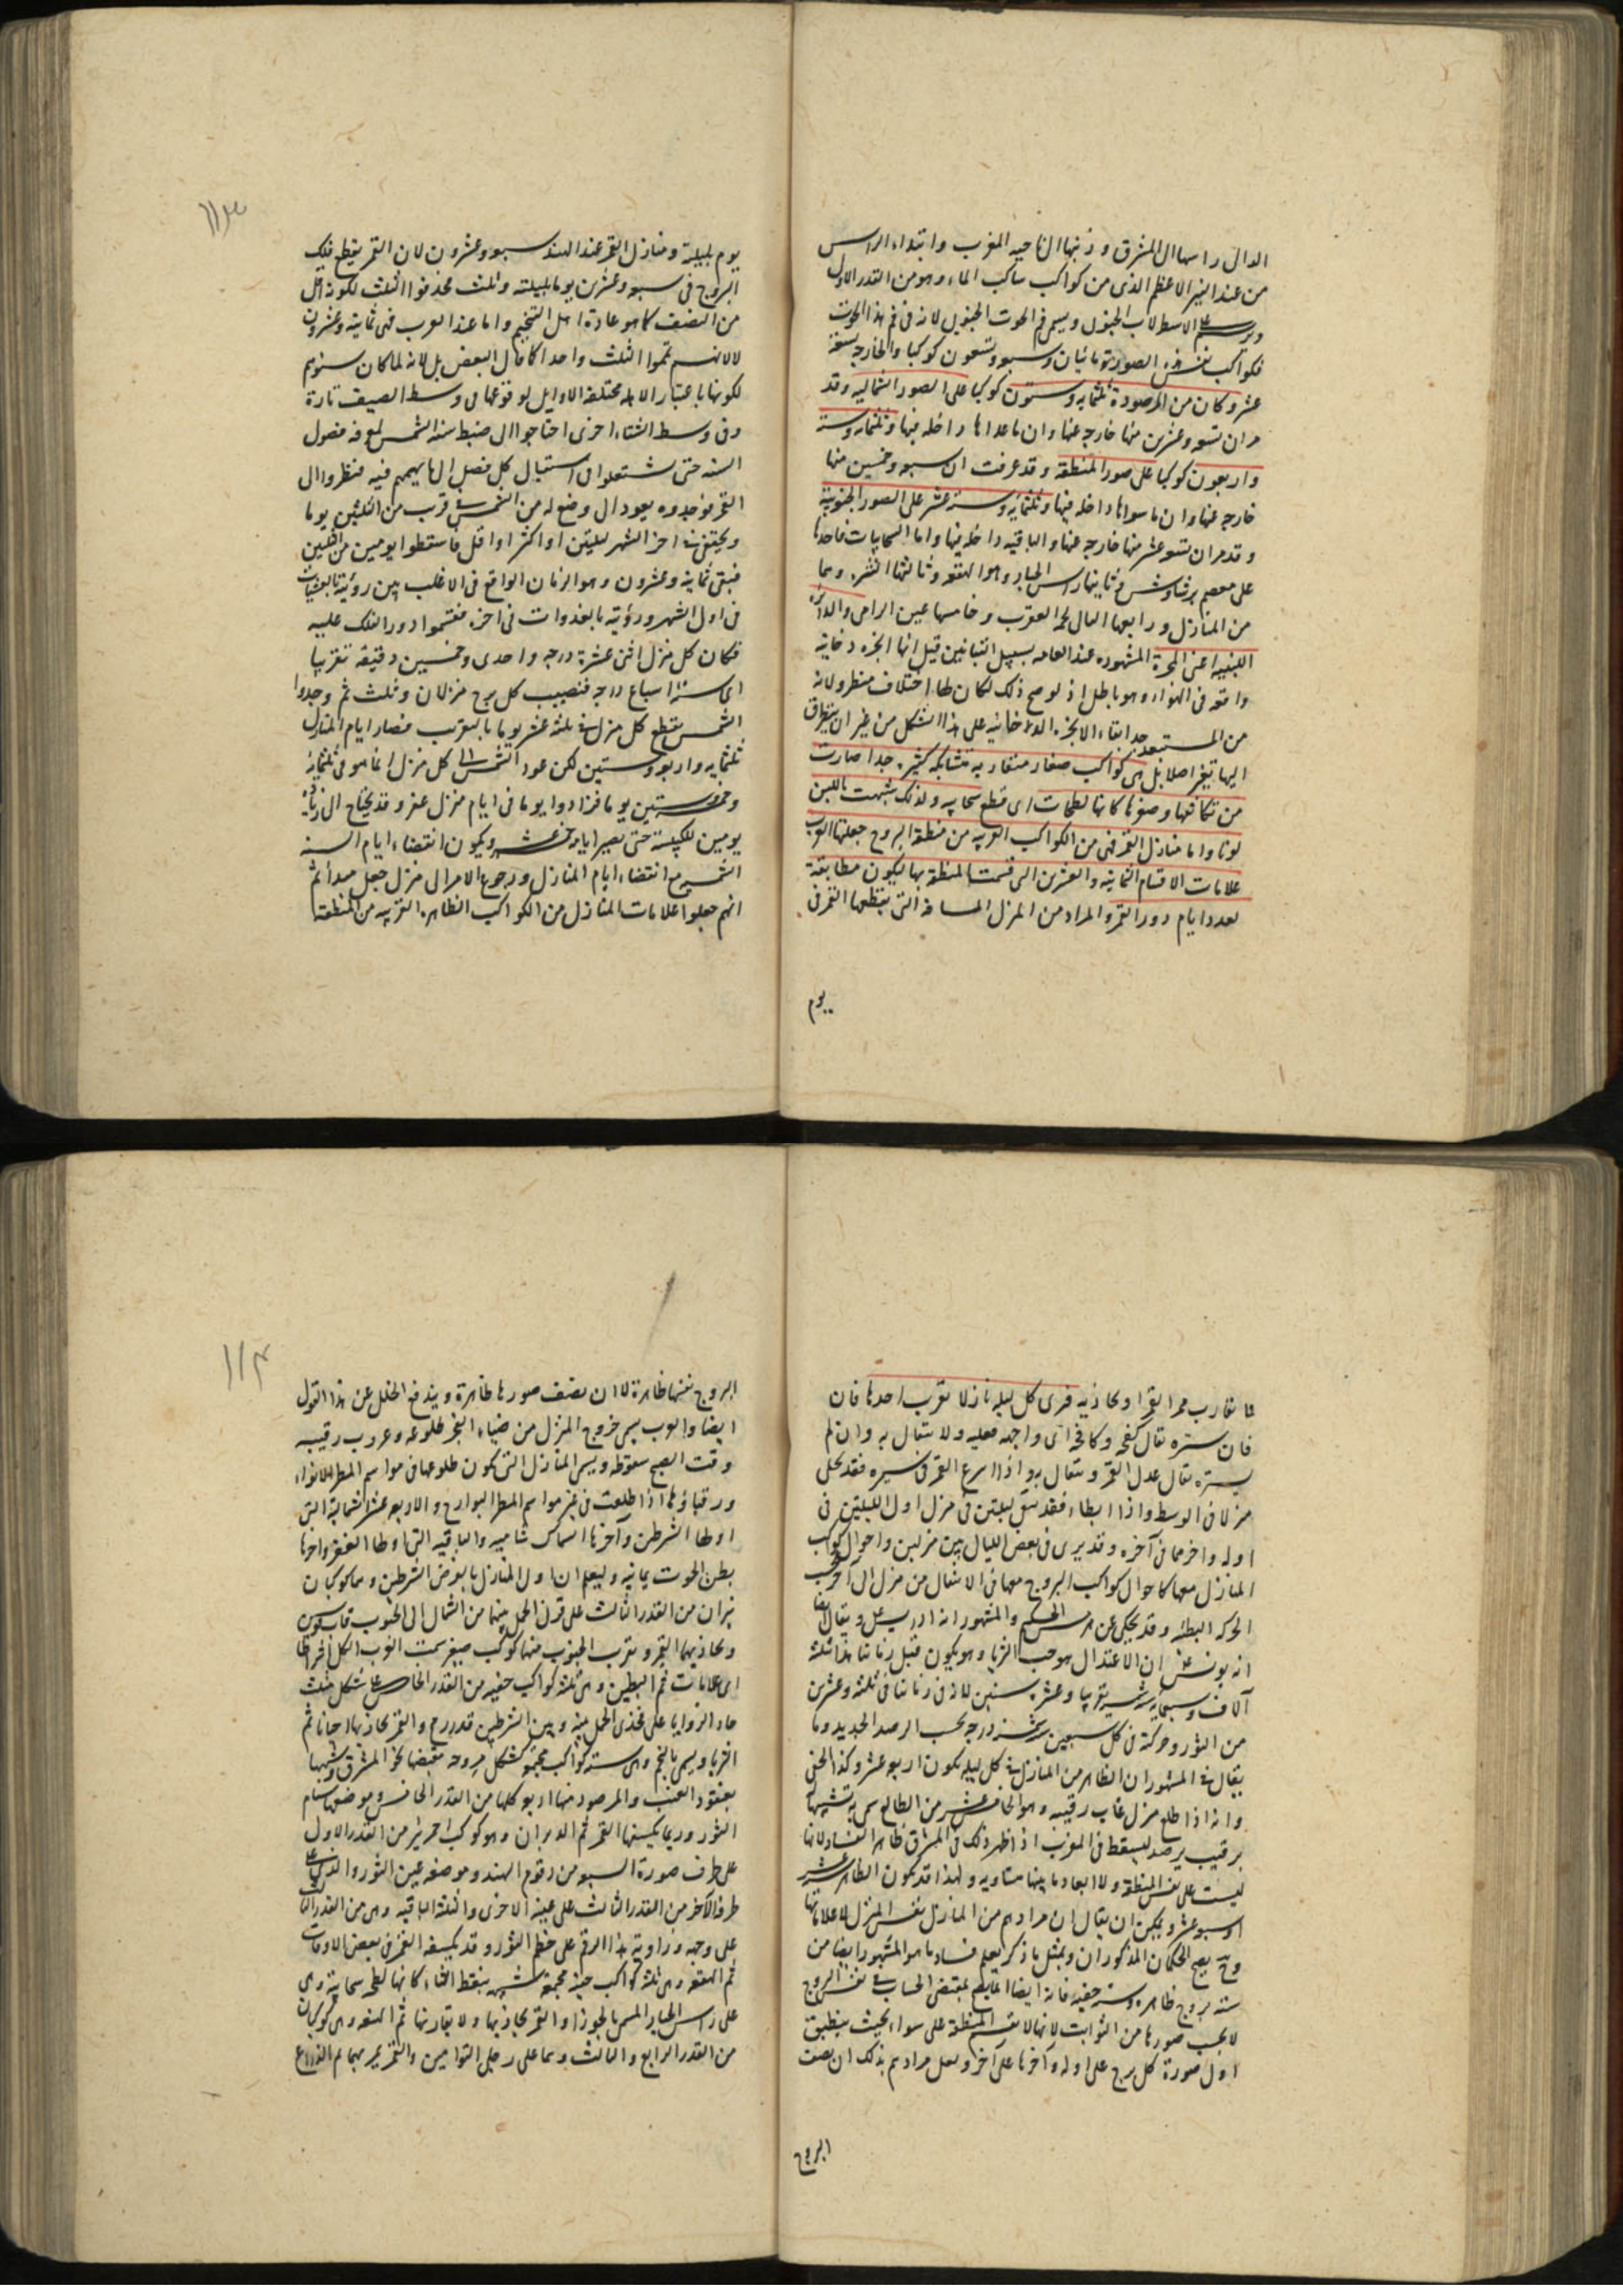 الدال راسها الى المشرق وذنبها الى ناحيه المغرب وابتداء الراس
من عند النير الاعظم الذى من كواكب ساكب الماء وهو من القدر الاول
ويرسم على الاسطرلاب الجنوبى ويسمى فم الحوت الجنوبى لانه فى فم هذا الحوت
فكواكب نفس هذه الصورة مائتان وسبعه وتسعون كوكبا والخارجه تسعة
عشر وكان من المرصودة ثلثمايه وستون كوكبا على الصور الشماليه وقد
مر ان تسعه وعشرين منها خارجه عنها وان ماعداها داخله فيها وثلثمايه وستة
واربعون كوكبا على صور المنطقة وقد عرفت ان سبعه وخمسين منها
خارجه عنها وان ما سواها داخله فيها وثلثمايه وستة عشر على الصور الجنوبية
وقد مر ان تسعه عشر منها خارجه عنها والباقيه داخله فيها واما السحابيات فاحدها
على معصم برشاوش وثانيها راس الجبار وهو الهقعه وثالثها النثره وهما
من المنازل ورابعها التالى لحمه العقرب وخامسها عين الرامى والدائرة
اللبنيه اعنى المجرة المشهوره عند العامه بسبيل التبانين قيل انها ابخره دخانيه
واقعه فى الهواء وهو باطل اذ لو صح ذلك لكان لها اختلاف منظر ولانه
من المستبعد جدا بقاء الابخره الدخانيه على هذا الشكل من غير ان يتطرق
اليها تغير اصلا بل هى كواكب صغار متقاربه متشابكه كثيره جدا صارت
من تكاثفها وصغرها كانها لطخات اى قطع سحابيه ولذلك شبهت باللبن
لونا واما منازل القمر فهى من الكواكب القريبه من منطقة البروج جعلتها العرب
علامات الاقسام الثمانيه والعشرين التى قسمت المنطقة بها ليكون مطابقة
لعدد ايام دور القمر والمراد من المنزل المسافة التى يقطعها القمر فى
يوم
١١٣
يوم بليلته ومنازل القمر عند الهند سبعه وعشرون لان القمر يقطع فلك
البروج فى سبعه وعشرين يوما بليلته وثلث فحذفوا الثلث لكونه اقل
من النصف كما هو عادة اهل التنجيم واما عند العرب فهى ثمانيه وعشرون
لا لانهم تمموا الثلث واحدا كما قال البعض بل لانه لما كان سنوهم
لكونها باعتبار الاهله مختلفة الاوايل لوقوعها فى وسط الصيف تارة
وفى وسط الشتاء اخرى احتاجوا الى ضبط سنه الشمس لمعرفه فصول
السنه حتى يشتغلوا فى استقبال كل فصل الى ما يهمهم فيه فنظروا الى
القمر فوجدوه يعود الى وضع له من الشمس فى قرب من الثلثين يوما
ويختفى فى اخر الشهر لليلتين او اكثر او اقل فاسقطوا يومين من الثلثين
فبقى ثمانيه وعشرون وهو الزمان الواقع فى الاغلب بين رؤيته بالعشيات
فى اول الشهر ورؤيته بالغدوات فى اخره فقسموا دور الفلك عليه
فكان كل منزل اثنى عشرة درجه واحدى وخمسين دقيقه تقريبا
اى ستة اسباع درجه فنصيب كل برج منزلان وثلث ثم وجدوا
الشمس يقطع كل منزل فى ثلثه عشر يوما بالتقريب فصار ايام المنازل
ثلثمايه واربعه وستين لكن عود الشمس الى كل منزل انما هو فى ثلثمائة
وخمسه وستين يوما فزادوا يوما فى ايام منزل غفر وقد يحتاج الى زيادة
يومين للكبيسة حتى يصير ايامه خمسه عشر ويكون انقضاء ايام السنه
الشمسيه مع انقضاء ايام المنازل ورجوع الامر الى منزل جعل مبدأ ثم
انهم جعلوا علامات المنازل من الكواكب الظاهره القريبه من المنطقة
ما يقارب ممر القمر او يحاذيه فيرى كل ليله نازلا بقرب احدها فان
فان ستره يقال كفحه وكافحه اى واجهه فغلبه ولا يتفال به وان لم
يستره يقال عدل القمر ويتفال به واذا اسرع القمر فى سيره فقد يخلى
منزلا فى الوسط واذا ابطاء فقد يبقى ليلتين فى منزل اول الليلتين فى
اوله واخرهما فى آخره وقد يرى فى بعض الليالى بين منزلين واحوال كواكب
المنازل معها كاحوال كواكب البروج معها فى الانتقال من منزل الى آخر بحسب
الحركه البطئه وقد يحكى عن هرمس الحكيم والمشهور انه ادريس على ويقال ايضا
انه يونس على ان الاعتدال هو حب الثريا وهو يكون قبل زماننا هذا ثلثة
آلاف وسبعمايه سنة تقريبا وعشر سنين لانه فى زماننا فى ثلثه وعشرين
من الثور وحركته فى كل سبعين سنة درجه بحسب الرصد الجديد وما
يقال فى المشهور ان الظاهر من المنازل فى كل ليله يكون اربعه عشر وكذا الخفى
وانه اذا طلع منزل غاب رقيبه وهو الخامس عشر من الطالع سمى به تشبيها
برقيب يرصد ليسقط فى المغرب اذ اظهر ذلك فى المشرق ظاهر الفساد لانها
ليست على نفس المنطقة ولا ابعاد ما بينها متساويه ولهذا قد يكون الظاهر ستة عشر
او سبعه عشر ويمكن ان يقال ان مرادهم من المنازل نفس المنزل لا علاماتها
وح يصح الحكمان المذكوران وبمثل ما ذكر يعلم فساد ما هو المشهور ايضا من
سته بروج ظاهره وسته خفيه فانه ايضا انما يتم بمقتضى الحساب فى نفس البروج
لا بحسب صورها من الثوابت لانها لا تقسم المنطقة على سواء بحيث ينطبق
اول صورة كل برج على اوله وآخرها على آخره ولعل مرادهم بذلك ان نصف
البروج
١١٤
البروج نفسها ظاهرة لا ان نصف صورها ظاهرة ويندفع الخلل عن هذا القول
ايضا والعرب يسمى خروج المنزل من ضياء الفجر طلوعه وغروب رقيبه
وقت الصبح سقوطه ويسمى المنازل التى يكون طلوعها فى مواسم المطر الانواء
ورقباؤها اذا طلعت فى غير مواسم المطر البوارح والاربعه عشر الشمالية التى
اولها الشرطين وآخرها السماك شاميه والباقيه التى اولها الغفر واخرها
بطن الحوت يمانيه وليعلم ان اول المنازل بالفرض الشرطين وهما كوكبان
نيران من القدر الثالث على قرنى الحمل بينهما من الشمال الى الجنوب قاب قوس
ويحاذيهما القمر وبقرب الجنوبى منهما كوكب صغير سمت العرب الكل اشراطا
اى علامات ثم البطين وهى ثلثه كواكب خفيه من القدر الخامس على شكل مثلث
حاد الزوايا على فخذى الحمل بينه وبين الشرطين قدر رمح والقمر يحاذيها احيانا ثم
الثريا ويسمى بالنجم وهى سته كواكب مجتمعه كشكل مروحه مقبضها نحو المشرق وشبهها
بعنقود العنب والمرصود منها اربعه كلها من القدر الخامس وموضعها سنام
الثور وربما يكسفها القمر ثم الدبران وهو كوكب احمر نير من القدر الاول
على طرف صورة السبعه من رقوم الهند وموضعه عين الثور والذى على
طرفه الآخر من القدر الثالث على عينه الاخرى والثلثة الباقيه وهى من القدر الثالث
على وجهه وزاوية هذا الرقم على خطم الثور وقد يكسفه القمر فى بعض الاوقات
ثم الهقعه وهى ثلثه كواكب خفيه مجتمعه شبيهه بنقط الثاء كانها لطخه سحابيه وهى
على راس الجبار المسمى بالجوزا والقمر يحاذيها ولا يقاربها ثم الهنعه وهى كوكبان
من القدر الرابع والثالث وهما على رجلى التوامين والقمر يمر بهما ثم الذراع